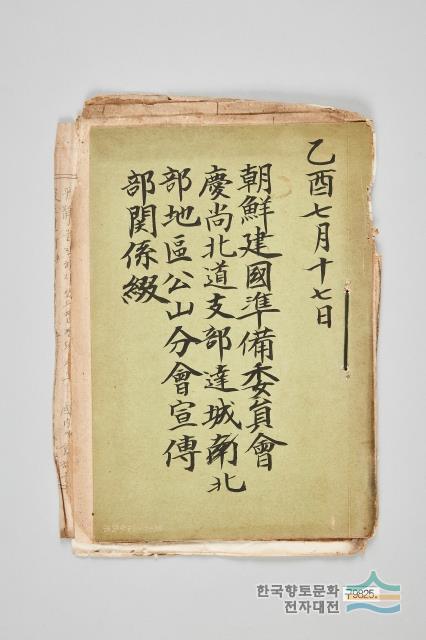 乙酉七月十七日
朝鮮建國準備委員會
慶尚北道支部達城南北
部地區公山分會宣傳
部関係綴
구9825
한국향토문화
전자대전